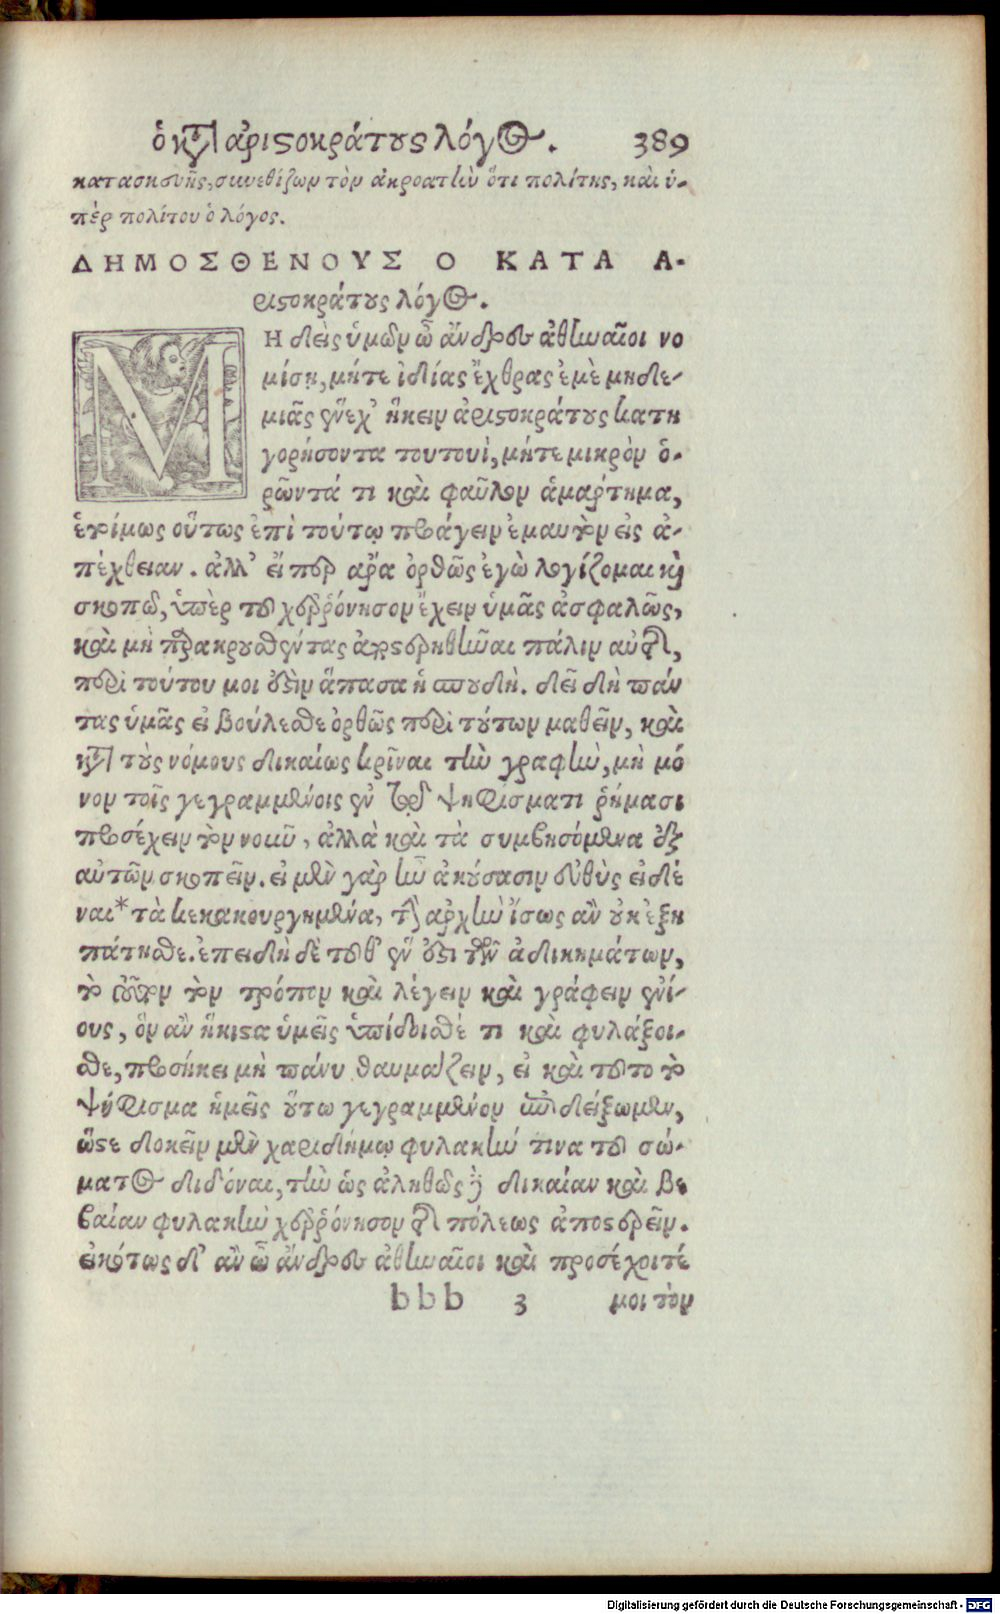 ὁ κατὰ ἀριστοκράτους λόγος. 389
κατασκευῆς, συνεθίζων τὸν ἀκροατὴν ὅτι πολίτης, καὶ ὑ-
πὲρ πολίτου ὁ λόγος.
ΔΗΜΟΣΘΕΝΟΥΣ Ο ΚΑΤΑ Α-
ριστοκράτους λόγος.
ΜΗ δεὶς ὑμῶν ὦ ἄνδρες ἀθηναῖοι νο
μίσῃ, μήτε ἰδίας ἔχθρας ἐμὲ μηδε-
μιᾶς ἕνεχ' ἥκειν ἀριστοκράτους κατη
γορήσοντα τουτουὶ, μήτε μικρὸν ὁ-
ρῶντά τι καὶ φαῦλον ἁμάρτημα,
ἑτοίμως οὕτως ἐπὶ τούτῳ προάγειν ἐμαυτὸν εἰς ἀ-
πέχθειαν. ἀλλ' εἴ περ ἄρα ὀρθῶς ἐγὼ λογίζομαι καὶ
σκοπῶ, ὑπὲρ τοῦ χερρόνησον ἔχειν ὑμᾶς ἀσφαλῶς,
καὶ μὴ παρακρουσθέντας ἀποστερηθῆναι πάλιν αὐτῆς,
περὶ τούτου μοι ἐστὶν ἅπασα ἡ σπουδὴ. δεῖ δὴ πάν
τας ὑμᾶς εἰ βούλεσθε ὀρθῶς περὶ τούτων μαθεῖν, καὶ
κατὰ τοὺς νόμους δικαίως κρῖναι τὴν γραφὴν, μὴ μό
νον τοῖς γεγραμμένοις ἐν τῷ ψηφίσματι ῥήμασι
προσέχειν τὸν νοῦν, ἀλλὰ καὶ τὰ συμβησόμενα ἐξ
αὐτῶν σκοπεῖν. εἰ μὲν γὰρ ἦν ἀκούσασιν εὐθὺς εἰδέ
ναι* τὰ κεκακουργημένα, τὴν ἀρχὴν ἴσως ἂν οὐκ ἐξη
πάτησθε. ἐπειδὴ δὲ τοῦθ' ἕν ἐστι τῶν ἀδικημάτων,
τὸ τοῦτον τὸν τρόπον καὶ λέγειν καὶ γράφειν ἐνί-
ους, ὃν ἂν ἥκιστα ὑμεῖς ὑπίδοισθέ τι καὶ φυλάξοι-
σθε, προσήκει μὴ πάνυ θαυμάζειν, εἰ καὶ τοῦτο τὸ
ψήφισμα ἡμεῖς οὕτω γεγραμμένον ἐπιδείξωμεν,
ὥστε δοκεῖν μὲν χαριδήμῳ φυλακήν τινα τοῦ σώ-
ματος διδόναι, τὴν ὡς ἀληθῶς δὲ δικαίαν καὶ βε
βαίαν φυλακὴν χερρόνησον τῆς πόλεως ἀποστερεῖν.
εἰκότως δ' ἂν ὦ ἄνδρες ἀθηναῖοι καὶ προσέχοιτέ
bbb 3 μοι τὸν
Digitalisierung gefördert durch die Deutsche Forschungsgemeinschaft - DFG